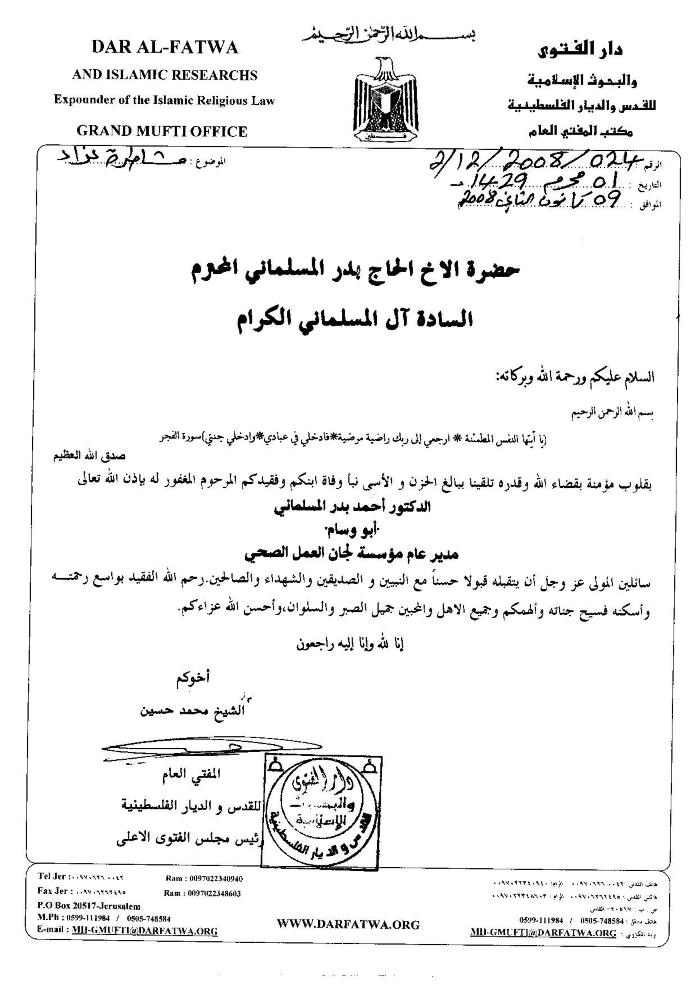 بسم الله الرحمن الرحيم
DAR AL-FATWA
AND ISLAMIC RESEARCHS
Expounder of the Islamic Religious Law
GRAND MUFTI OFFICE
دار الفتوى
والبحوث الإسلامية
للقدس والديار الفلسطينية
مكتب المفتي العام
فلسطين
الرقم : 2/12/2008/024
التاريخ : 01 محرم 1429
الموافق : 09 كانون الثاني 2008
الموضوع : مشاطرة عزاء
حضرة الاخ الحاج بدر المسلماني المحترم
السادة آل المسلماني الكرام
السلام عليكم ورحمة الله وبركاته:
بسم الله الرحمن الرحيم
(يا أيتها النفس المطمئنة * ارجعي إلى ربك راضية مرضية*فادخلي في عبادي*وادخلي جنتي) سورة الفجر
صدق الله العظيم
بقلوب مؤمنة بقضاء الله وقدره تلقينا ببالغ الحزن و الأسى نبأ وفاة ابنكم وفقيدكم المرحوم المغفور له بإذن الله تعالى
الدكتور أحمد بدر المسلماني
"أبو وسام"
مدير عام مؤسسة لجان العمل الصحي
سائلين المولى عز وجل أن يتقبله قبولا حسناً مع النبيين و الصديقين والشهداء والصالحين.رحم الله الفقيد بواسع رحمتـــه
وأسكنه فسيح جناته وألهمكم وجميع الاهل والمحبين جميل الصبر والسلوان،وأحسن الله عزاءكم.
إنا لله وإنا إليه راجعون
أخوكم
الشيخ محمد حسين
المفتي العام
للقدس و الديار الفلسطينية
رئيس مجلس الفتوى الاعلى
دار الفتوى
والبحوث
الإسلامية
القدس و الديار الفلسطينية
Tel Jer : ٠٠٩٧٠٢٦٢٦٠٠٤٢
Ram : 0097022340940
Fax Jer :
Ram : 0097022348603
P.O Box 20517-Jerusalem
M.Ph : 0599-111984 / 0505-748584
E-mail : MH-GMUFTI@DARFATWA.ORG
WWW.DARFATWA.ORG
هاتف القدس :
فاكس القدس :
ص . ب : ٢٠٥١٧-القدس
0599-111984 / 0505-748584
بريد الكتروني : MH-GMUFTI@DARFATWA.ORG